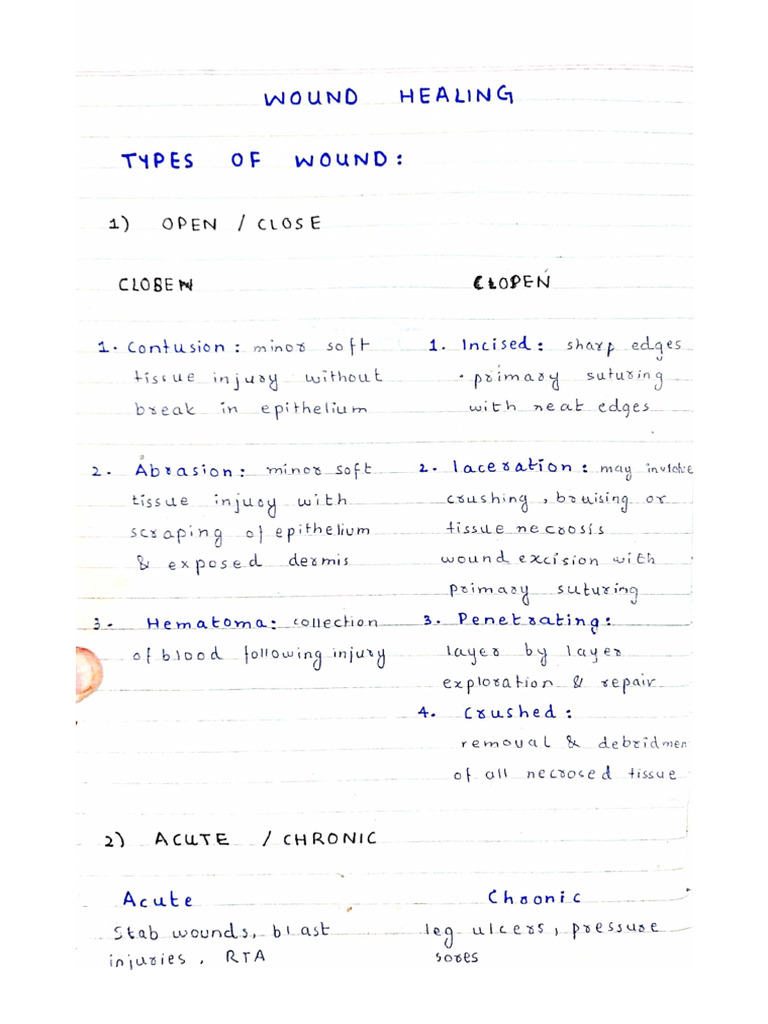 WOUND HEALING
TYPES OF WOUND:
1) OPEN / CLOSE
CLOSEN
1. Contusion: minor soft
tissue injury without
break in epithelium
2. Abrasion: minor soft
tissue injury with
scraping of epithelium
& exposed dermis
3. Hematoma: collection
of blood following injury
CLOPEN
1. Incised: sharp edges
• primary suturing
with neat edges
2. laceration: may involve
crushing, bruising or
tissue necrosis
wound excision with
primary suturing
3. Penetrating:
layer by layer
exploration & repair
4. Crushed:
removal & debridmen
of all necrosed tissue
2) ACUTE / CHRONIC
Acute
Stab wounds, blast
injuries, RTA
Chronic
leg ulcers, pressure
sores